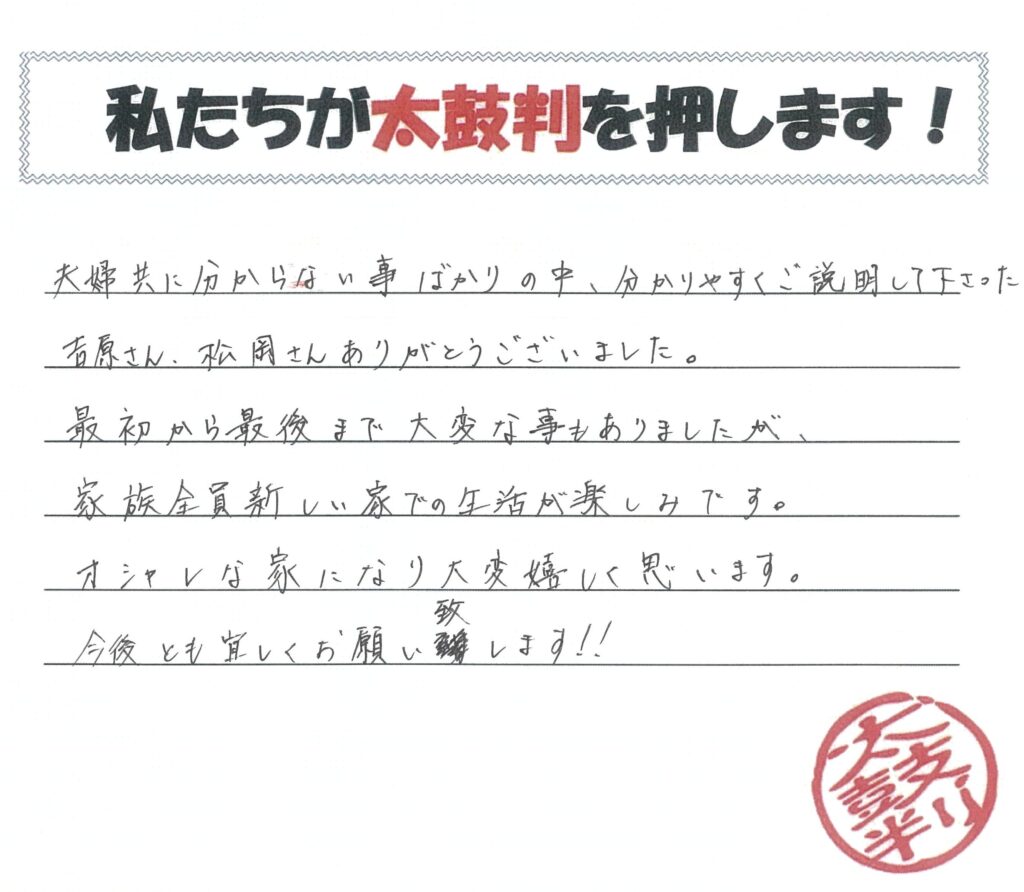 私たちが太鼓判を押します！
夫婦共に分からない事ばかりの中、分かりやすくご説明して下さった
吉原さん、松岡さんありがとうございました。
最初から最後まで大変な事もありましたが、
家族全員新しい家での生活が楽しみです。
オシャレな家になり大変嬉しく思います。
今後とも宜しくお願い致します!!
太鼓判